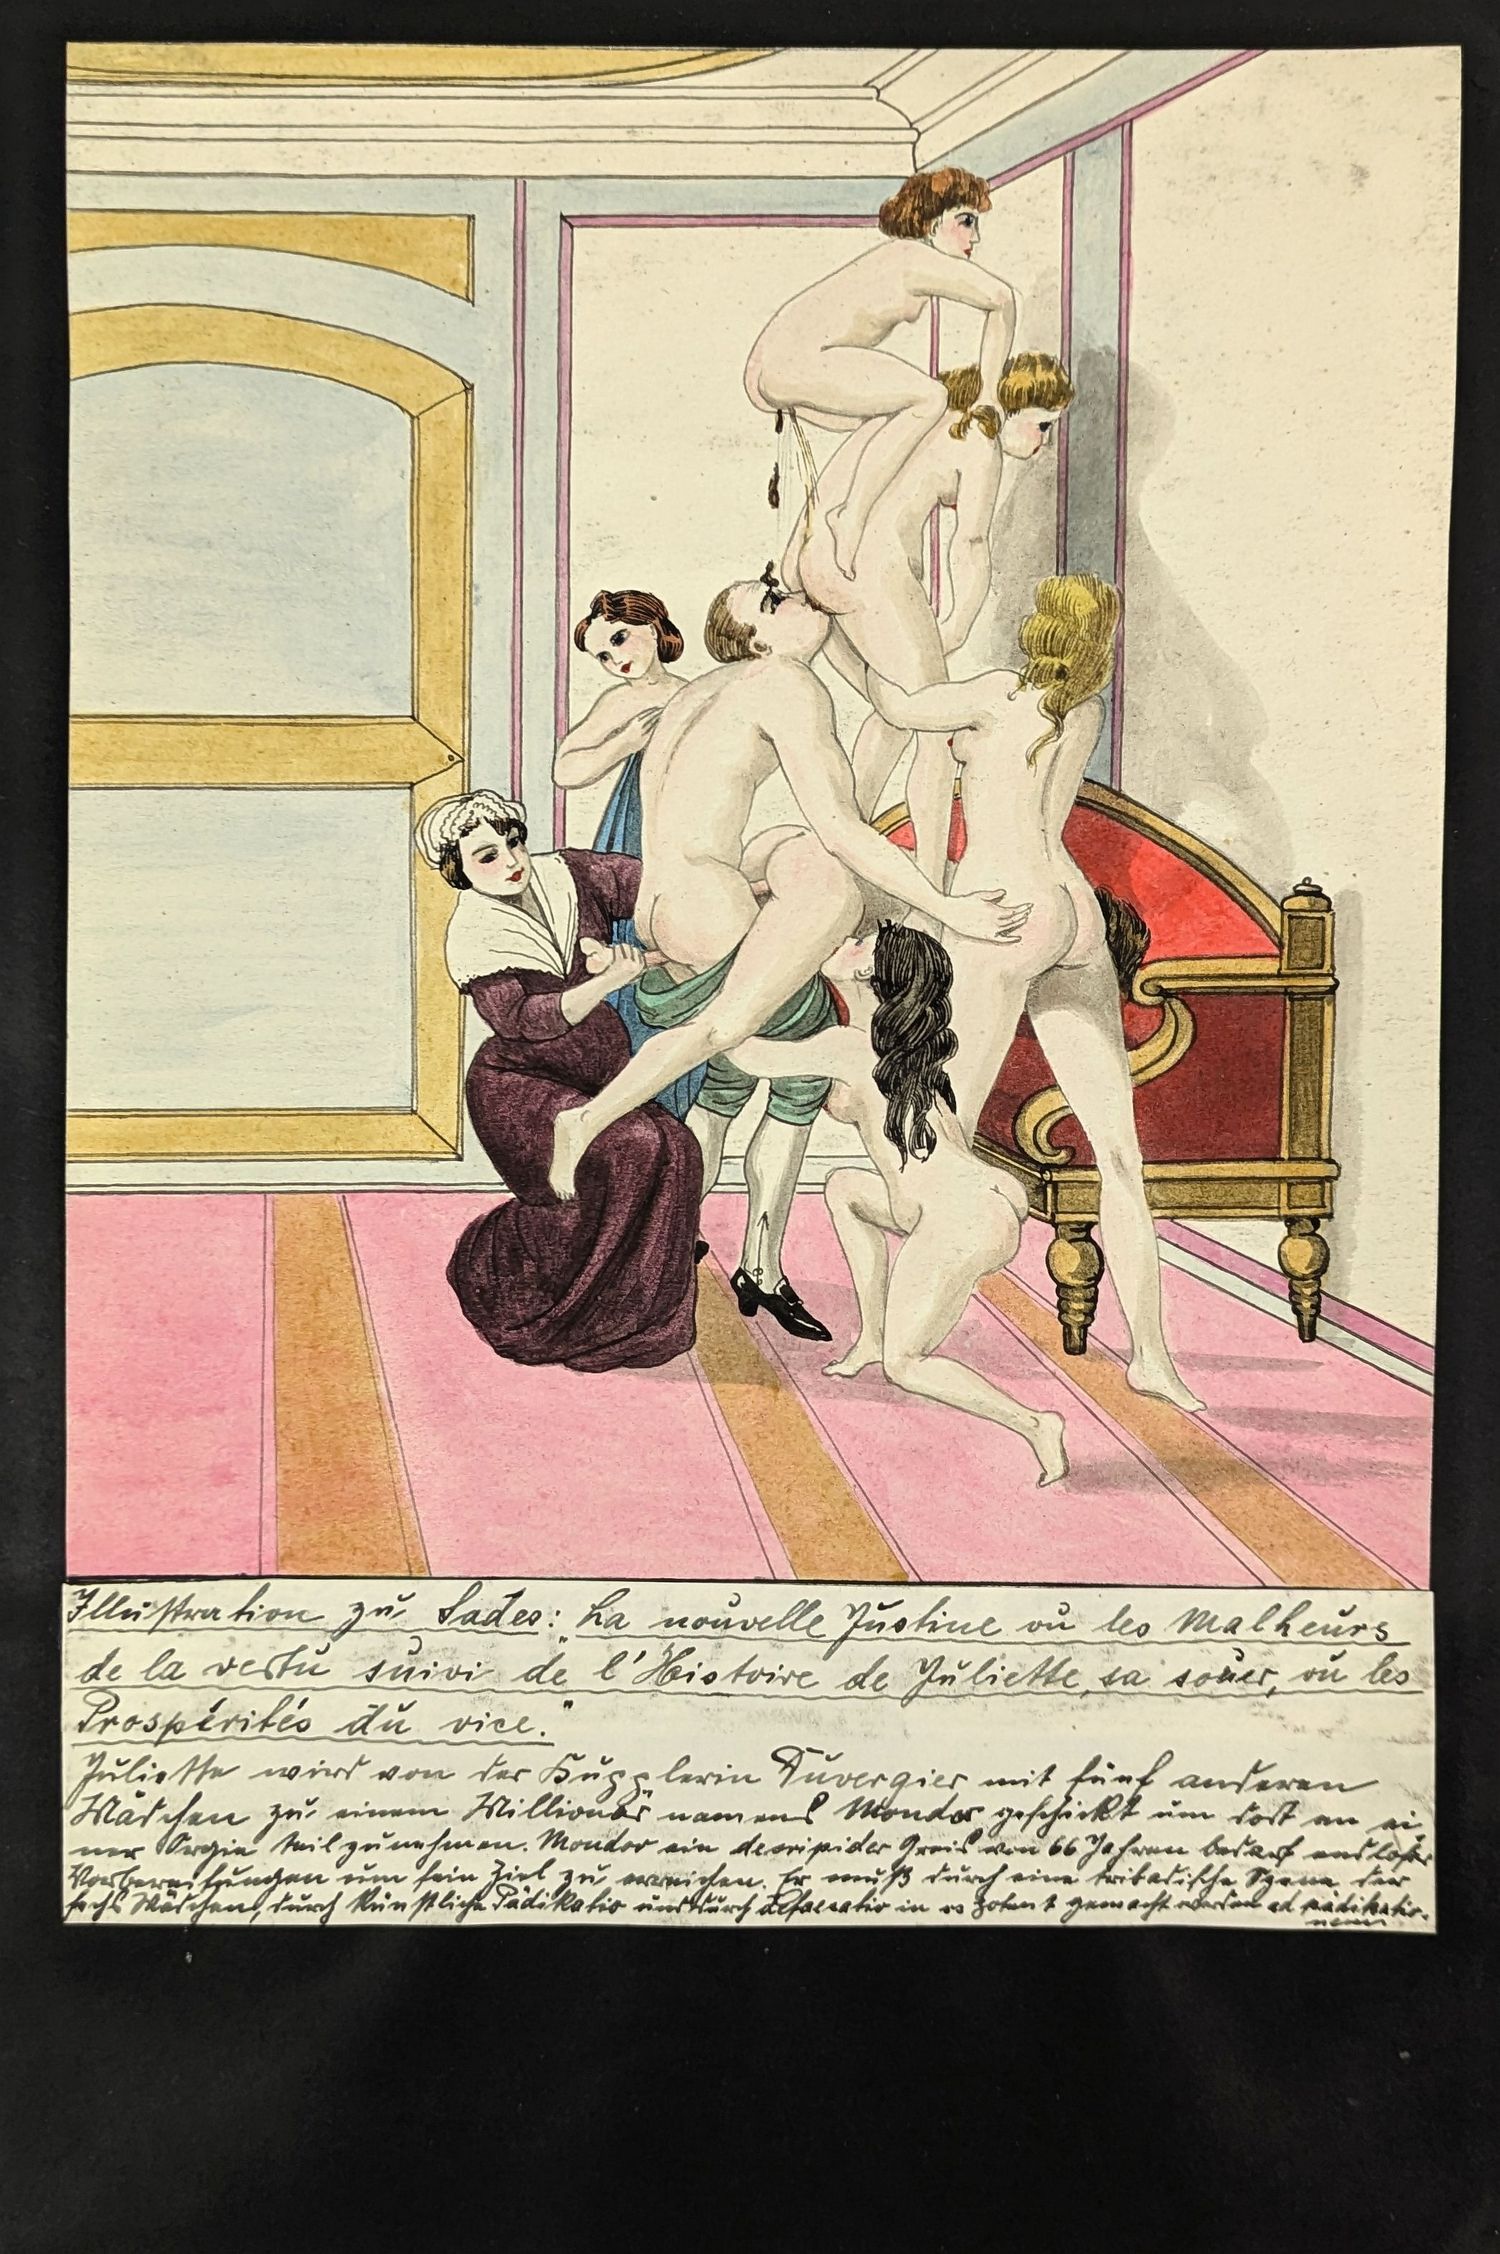 Illustration zu Sades: "La nouvelle Justine ou les Malheurs
de la vertu suivi de l'Histoire de Juliette, sa soeur, ou les
Prospérités du vice."
Juliette wird von der Kupplerin Duvergier mit fünf anderen
Mädchen zu einem Millionär namens Mondor geschickt um dort an ei
ner Orgie teilzunehmen. Mondor ein Greis von 66 Jahren bedarf endloser
Vorbereitungen um sein Ziel zu erreichen. Er muß durch eine tribadische Szene der
sechs Mädchen, durch künstliche Pädikatio und durch Defaecatio in os potent gemacht werden